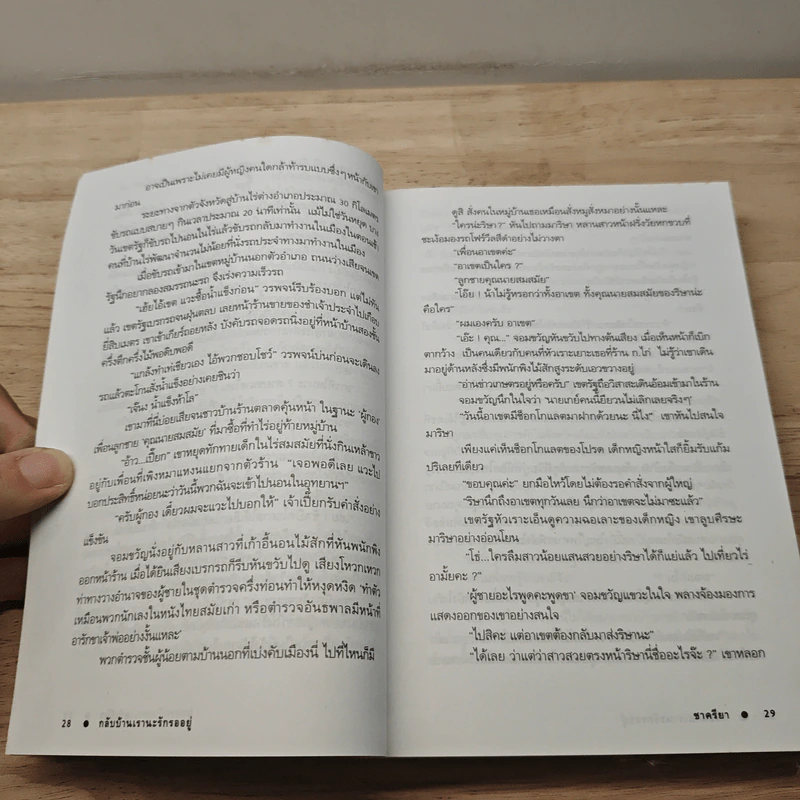 อาจเป็นเพราะไม่เคยมีผู้หญิงคนใดกล้าท้ารบแบบซึ่งๆ หน้ากับเขา
มาก่อน
ระยะทางจากตัวจังหวัดสู่บ้านไร่ต่างอำเภอประมาณ 30 กิโลเมตร
ขับรถแบบสบายๆ กินเวลาประมาณ 20 นาทีเท่านั้น แม้ไม่ใช่วันหยุด บาง
วันเขตรัฐก็ขับรถไปนอนในไร่แล้วขับรถกลับมาทำงานในเมืองในตอนเช้า
คนที่บ้านไร่พัฒนาจำนวนไม่น้อยที่นั่งรถประจำทางมาทำงานในเมือง
เมื่อขับรถเข้ามาในเขตหมู่บ้านนอกตัวอำเภอ ถนนว่างเสียจนเขต
รัฐนึกอยากลองสมรรถนะรถ จึงเร่งความเร็วรถ
"เฮ้ยไอ้เขต แวะซื้อน้ำแข็งก่อน" วรพจน์รีบร้องบอก แต่ไม่ทัน
แล้ว เขตรัฐเบรกรถจนฝุ่นตลบ เลยหน้าร้านขายของชำเจ้าประจำไปเกือบ
ยี่สิบเมตร เขาเข้าเกียร์ถอยหลัง บังคับรถจอดรถนิ่งอยู่ที่หน้าบ้านสองชั้น
ครึ่งตึกครึ่งไม้พอดิบพอดี
"แกล้งทำเท่เชียวเอง ไอ้พวกชอบโชว์" วรพจน์บ่นก่อนจะเดินลง
รถแล้วตะโกนสั่งน้ำแข็งอย่างเคยชินว่า
"เจ๊นง น้ำแข็งห้าโล"
เขามาที่นี่บ่อยเสียจนชาวบ้านร้านตลาดคุ้นหน้า ในฐานะ 'ผู้กอง'
เพื่อนลูกชาย 'คุณนายสมสมัย' ที่มาซื้อที่ทำไร่อยู่ท้ายหมู่บ้าน
"อ้าว...เปี๊ยก" เขาหยุดทักทายเด็กในไร่สมสมัยที่นั่งกินเหล้าขาว
อยู่กับเพื่อนที่เพิงหมาแหงนแยกจากตัวร้าน "เจอพอดีเลย แวะไป
บอกประสิทธิ์หน่อยนะว่าวันนี้พวกฉันจะเข้าไปนอนในอุทยานฯ"
"ครับผู้กอง เดี๋ยวผมจะแวะไปบอกให้" เจ้าเปี๊ยกรับคำสั่งอย่าง
แข็งขัน
จอมขวัญนั่งอยู่กับหลานสาวที่เก้าอี้นอนไม้สักที่หันพนักพิง
ออกหน้าร้าน เมื่อได้ยินเสียงเบรกรถก็รีบหันขวับไปดู เสียงโหวกเหวก
ท่าทางวางอำนาจของผู้ชายในชุดตำรวจครึ่งท่อนทำให้หงุดหงิด 'ทำตัว
เหมือนพวกนักเลงในหนังไทยสมัยเก่า หรือตำรวจอันธพาลมีหน้าที่
อารักขาเจ้าพ่ออย่างงั้นแหละ'
พวกตำรวจชั้นผู้น้อยตามบ้านนอกที่เบ่งคับเมืองนี่ ไปที่ไหนก็มี
28 ● กลับบ้านเรานะรักรออยู่
ดูสิ สั่งคนในหมู่บ้านเธอเหมือนสั่งหมูสั่งหมาอย่างนั้นแหละ
"ใครน่ะริษา ?" หันไปถามมาริษา หลานสาวหน้าฝรั่งวัยหกขวบที่
ชะเง้อมองรถโฟร์วีลสีดำอย่างไม่วางตา
"เพื่อนอาเขตค่ะ"
"อาเขตเป็นใคร ?"
"ลูกชายคุณนายสมสมัย"
"โอ๊ย ! น้าไม่รู้หรอกว่าทั้งอาเขต ทั้งคุณนายสมสมัยของริษาน่ะ
คือใคร"
"ผมเองครับ อาเขต"
"เอ๊ะ ! คุณ..." จอมขวัญหันขวับไปทางต้นเสียง เมื่อเห็นหน้าก็เบิก
ตากว้าง เป็นคนเดียวกับคนที่หัวเราะเยาะเธอที่ร้าน ก.ไก่ ไม่รู้ว่าเขาเดิน
มาอยู่ด้านหลังซึ่งมีพนักพิงไม้สักสูงระดับเอวขวางอยู่
"อ่านข่าวเกษตรอยู่หรือครับ" เขตรัฐถือวิสาสะเดินอ้อมเข้ามาในร้าน
จอมขวัญนึกในใจว่า 'นายเกย์คนนี้ยียวนไม่เลิกเลยจริงๆ'
"วันนี้อาเขตมีช็อกโกแลตมาฝากด้วยนะ นี่ไง" เขาหันไปสนใจ
มาริษา
เพียงแค่เห็นช็อกโกแลตของโปรด เด็กหญิงหน้าใสก็ยิ้มรับแก้ม
ปริเลยทีเดียว
"ขอบคุณค่ะ" ยกมือไหว้โดยไม่ต้องรอคำสั่งจากผู้ใหญ่
"ริษานึกถึงอาเขตทุกวันเลย นึกว่าอาเขตจะไม่มาซะแล้ว"
เขตรัฐหัวเราะเอ็นดูความฉอเลาะของเด็กหญิง เขาลูบศีรษะ
มาริษาอย่างอ่อนโยน
"โธ่...ใครลืมสาวน้อยแสนสวยอย่างริษาได้ก็แย่แล้ว ไปเที่ยวไร่
อามั้ยคะ ?"
'ผู้ชายอะไรพูดคะพูดขา' จอมขวัญแขวะในใจ พลางจ้องมองการ
แสดงออกของเขาอย่างสนใจ
"ไปสิคะ แต่อาเขตต้องกลับมาส่งริษานะ"
"ได้เลย ว่าแต่ว่าสาวสวยตรงหน้าริษานี่ชื่ออะไรจ๊ะ ?" เขาหลอก
ชาครียา ● 29